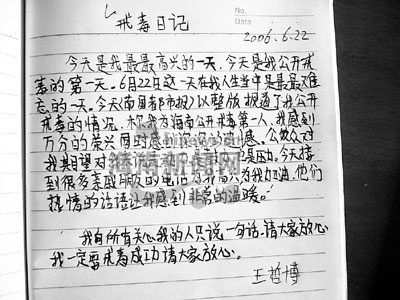 戒毒日记
No.
Date
2006.6.22
今天是我最最高兴的一天,今天是我公开戒
毒的第一天。6月22日这一天在我人生当中是最最难
忘的一天。今天《南国都市报》以整版报道了我公开
戒毒的情况,称我为海南公开戒毒第一人,我感到
万分的荣兴同时感
我期望对 是压力。今天接
到很多亲戚朋友的电话 为我加油,他们
热情的话语让我感到非常的温暖。
我向所有关心我的人只说一句话,请大家放心
我一定要戒毒成功请大家放心。
王哲博